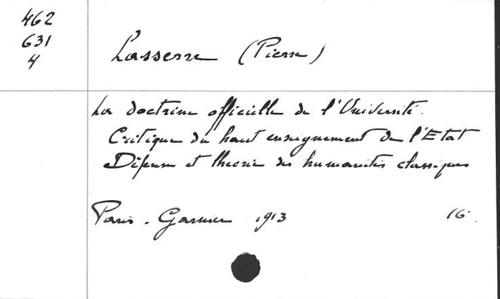 462
631
4
Lasserre (Pierre)
La doctrine officielle de l'Université.
Critique du haut enseignement de l'Etat
Défense et théorie des humanités classiques
Paris. Garnier 1913 16°